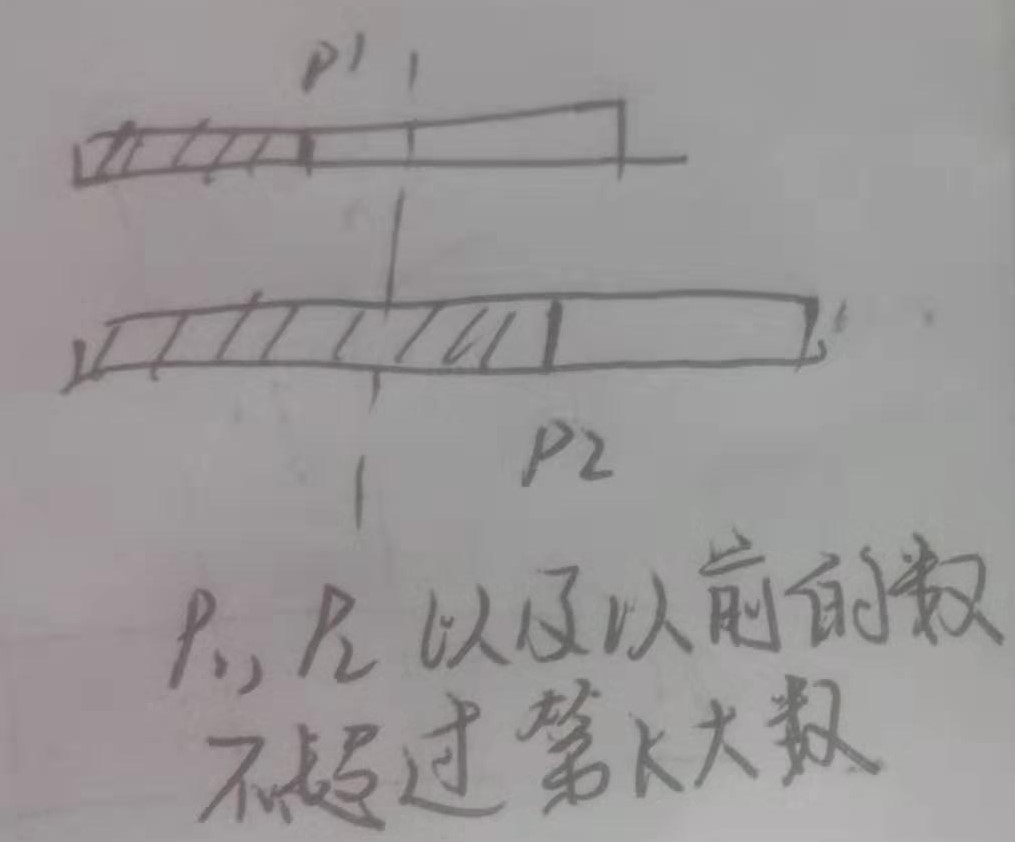 P1
P2
P1, P2 以及以前的数
不超过第K大数